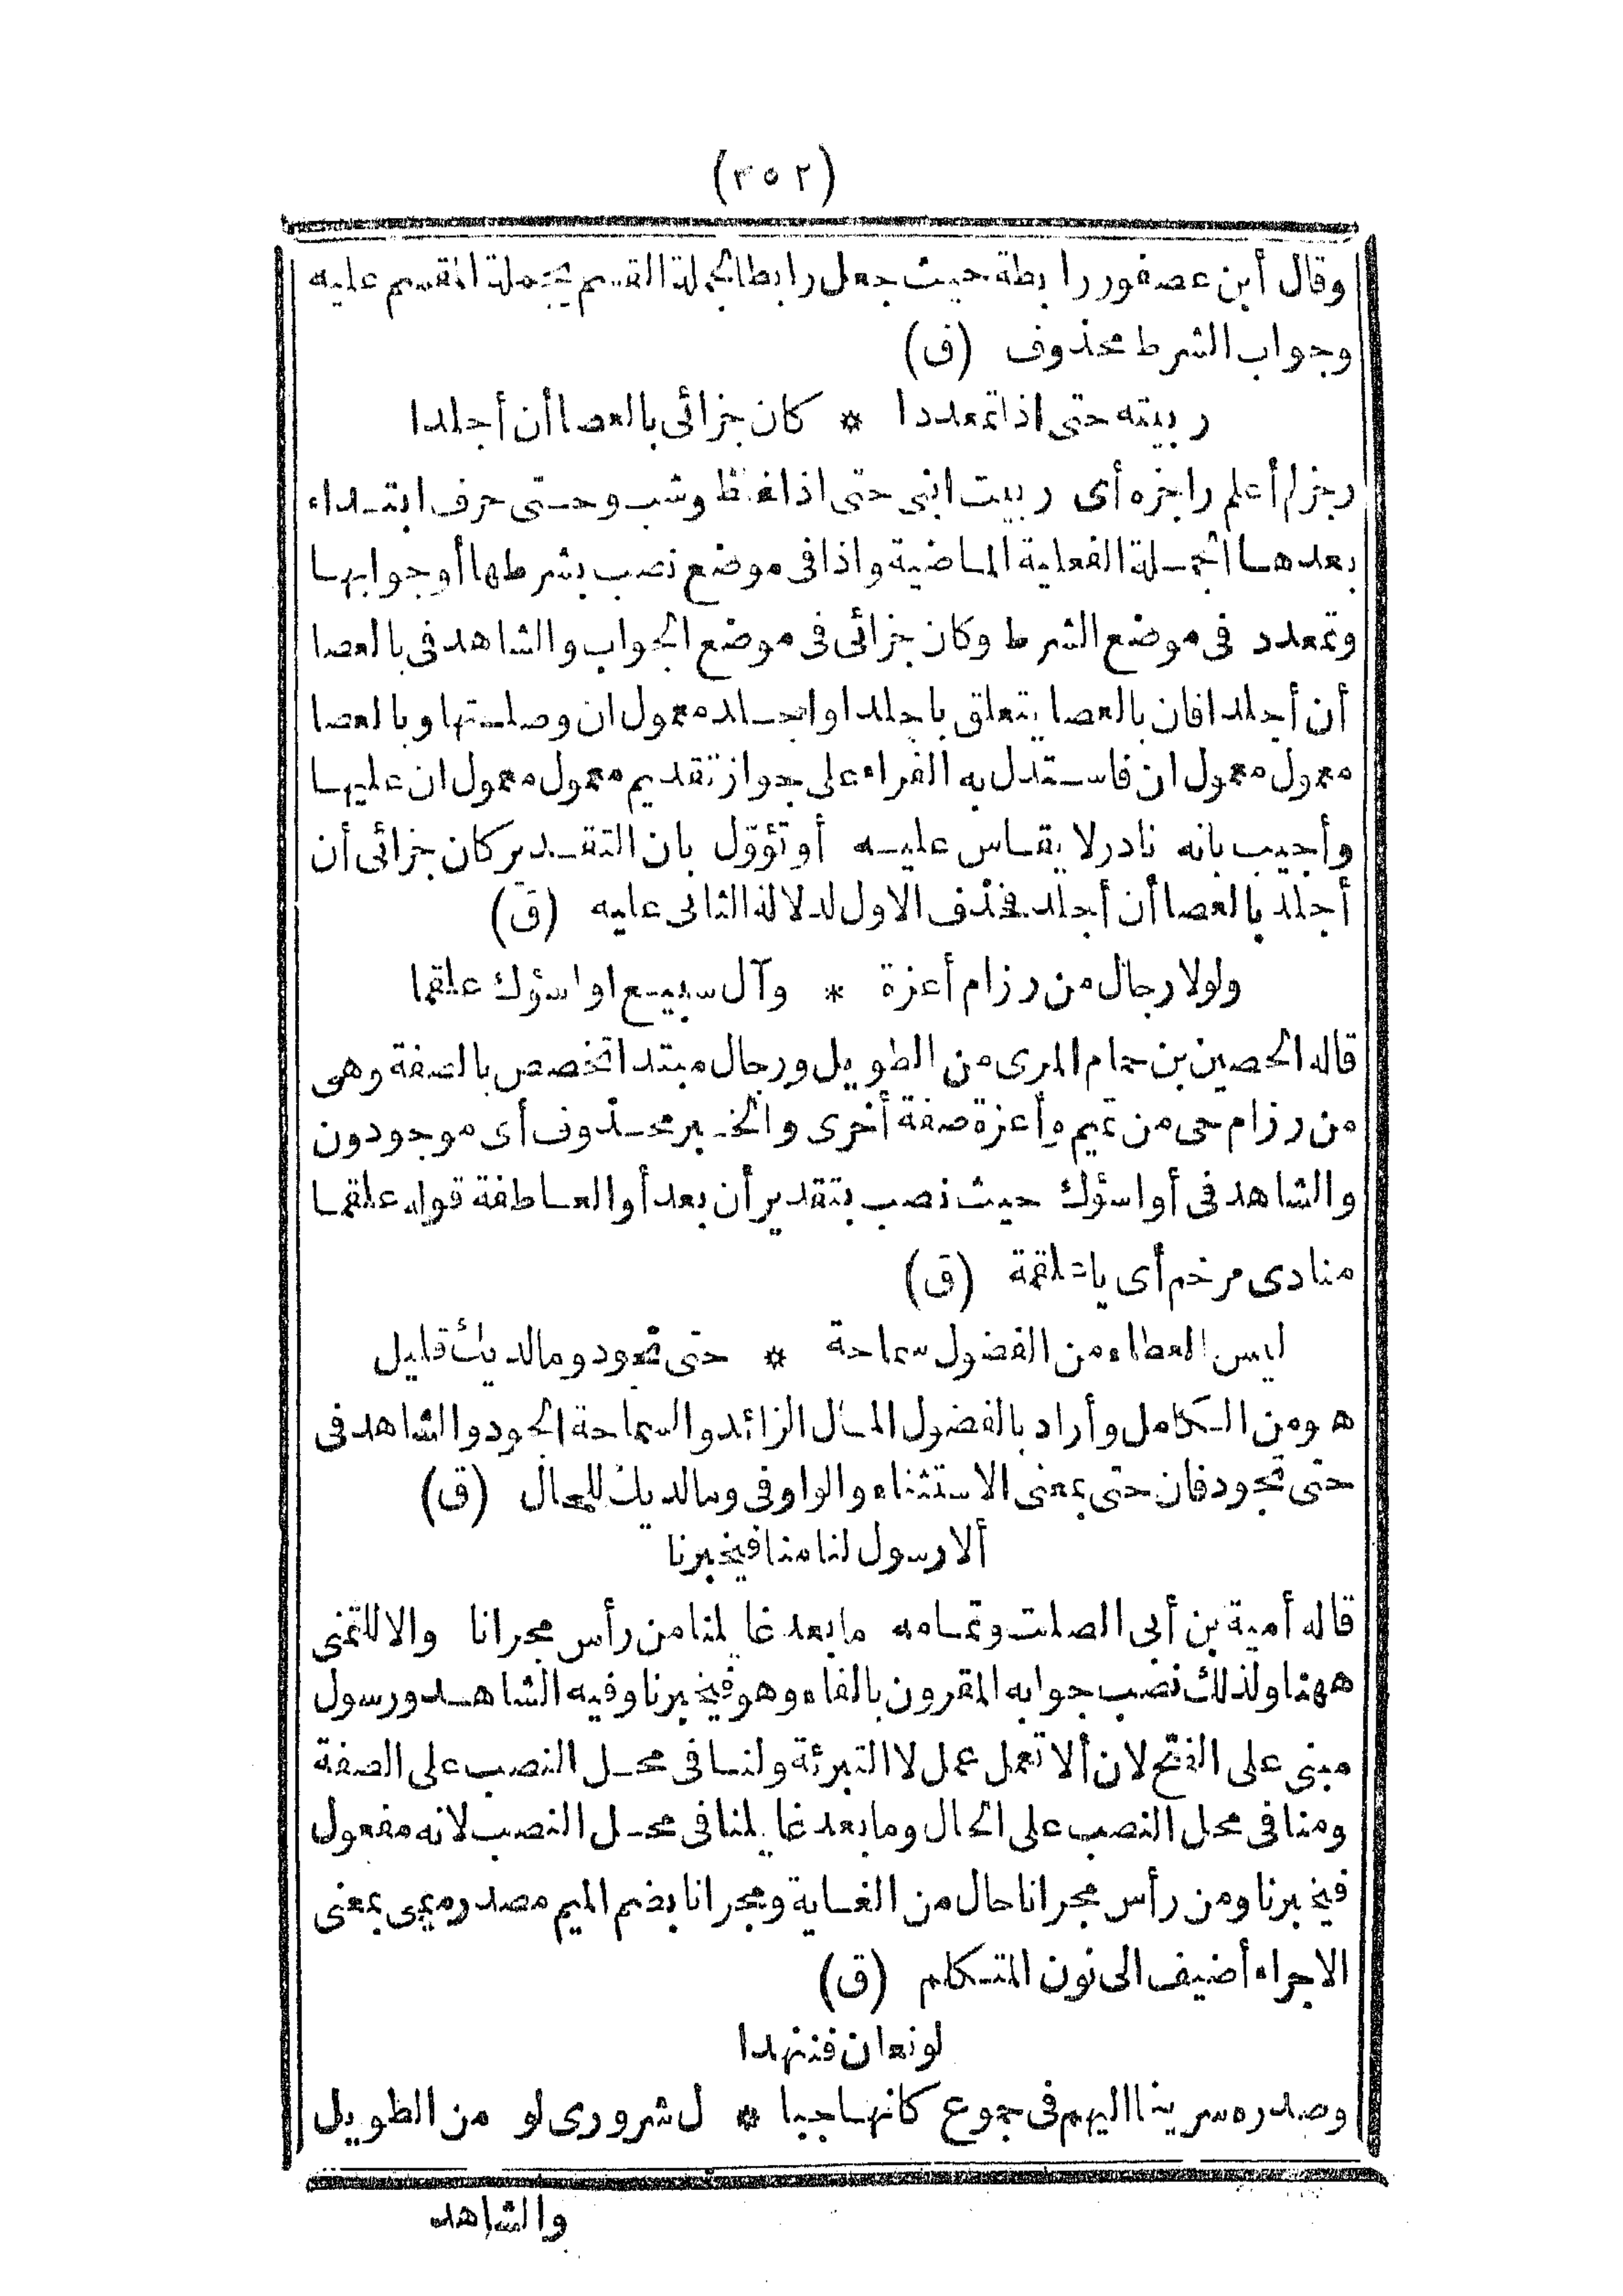 (٣٥٢)
وقال أبن عصفور رابطة حيث جعل رابطا لجملة القسم بجملة المقسم عليه
وجواب الشرط محذوف (ق)
ربيته حتى اذا تمعددا * كان جزائى بالعصا أن أجلدا
رجز لم أعلم راجزه أى ربيت ابنى حتى اذا غلظ وشب وحتى حرف ابتداء
بعدها الجملة الفعلية الماضية واذا فى موضع نصب بشرطها أو جوابها
وتمعدد فى موضع الشرط وكان جزائى فى موضع الجواب والشاهد فى بالعصا
أن أجلدا فان بالعصا يتعلق باجلدا واجلد معمول ان وصلتها وبالعصا
معمول معمول ان فاستدل به الفراء على جواز تقديم معمول معمول ان عليها
وأجيب بانه نادر لا يقاس عليه أو تؤوّل بان التقدير كان جزائى أن
أجلد بالعصا أن أجلد فحذف الاول لدلالة الثانى عليه (ق)
ولولا رجال من رزام أعزة * وآل سبيع اواسؤك علقما
قاله الحصين بن حمام المرى من الطويل ورجال مبتدا تخصص بالصفة وهى
من رزام حى من تميم وأعزة صفة أخرى والخبر محذوف أى موجودون
والشاهد فى أو اسؤك حيث نصب بتقدير أن بعد أو العاطفة قوله علقما
منادى مرخم أى يا علقمة (ق)
ليس العطاء من الفضول سماحة * حتى تجود وما لديك قليل
هو من الكامل وأراد بالفضول المال الزائد والسماحة الجود والشاهد فى
حتى تجود فان حتى بمعنى الاستثناء والواو فى وما لديك للحال (ق)
ألا رسول لنا منا فيخبرنا
قاله أمية بن أبى الصلت وتمامه ما بعد غايلنا من رأس مجرانا والا للتمنى
ههنا ولذلك نصب جوابه المقرون بالفاء وهو فيخبرنا وفيه الشاهد ورسول
مبنى على الفتح لان ألا تعمل عمل لا التبرئة ولنا فى محل النصب على الصفة
ومنا فى محل النصب على الحال وما بعد غايلنا فى محل النصب لانه مفعول
فيخبرنا ومن رأس مجرانا حال من الغاية ومجرانا بضم الميم مصدر ميمى بمعنى
الاجراء أضيف الى نون المتكلم (ق)
لو نعان فننهدا
وصدره سرينا اليهم فى جموع كانها جبا * ل شرورى لو من الطويل
والشاهد